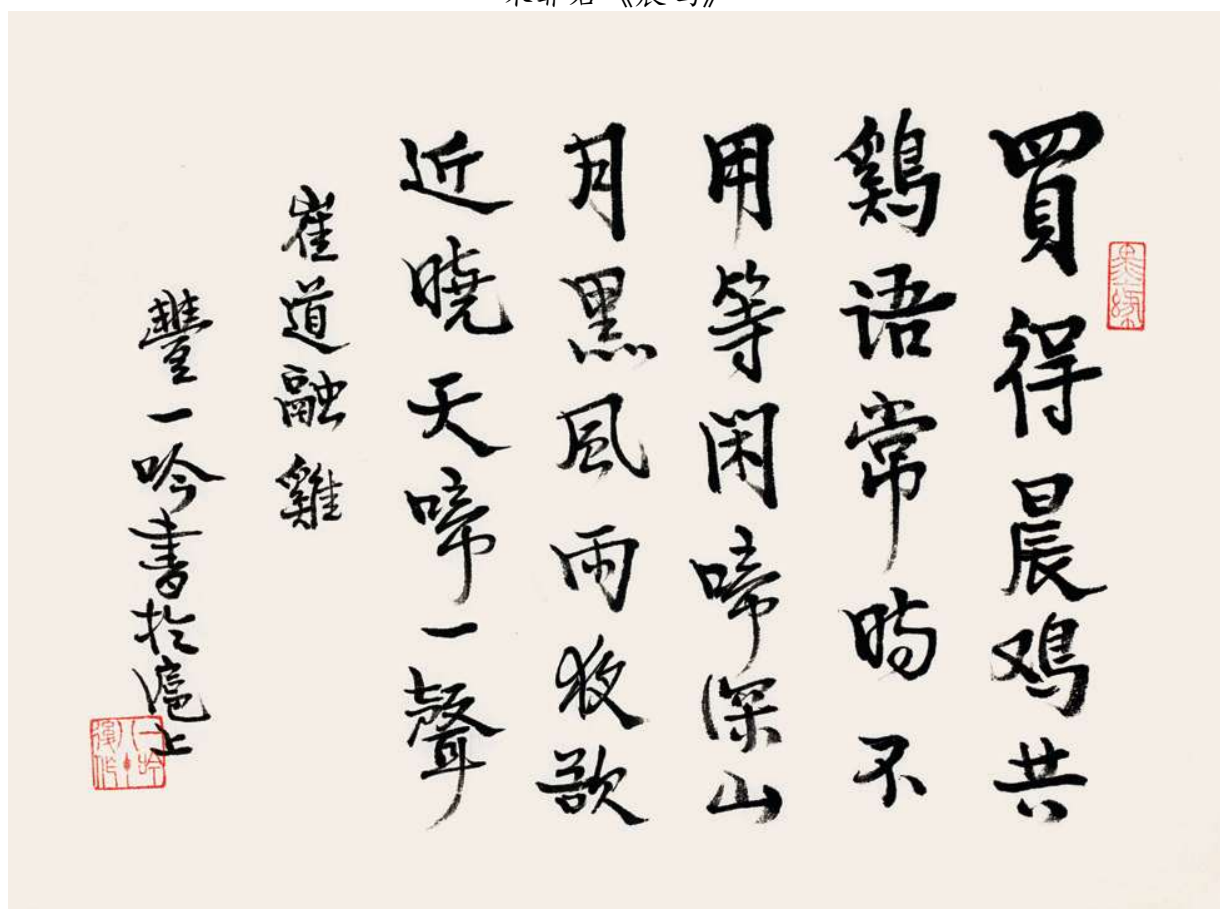 買得晨鸡共
鷄语常時不
用等闲啼深山
月黑風雨夜欲
近曉天啼一聲
崔道融雞
豐一吟書於滬上